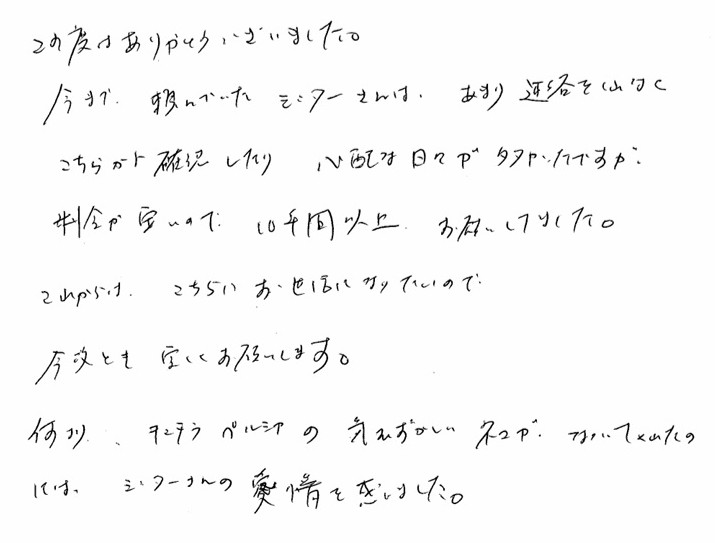 この度はありがとうございました。
今まで、頼んでいた シッターさんは、あまり 連絡を くれなく
こちらから 確認したり 心配な日々が 多かったですが、
料金が安いので 10年間以上 お願いしてました。
これからは、こちらに お世話になりたいので
今後とも 宜しくお願いします。
何より、チンチラペルシャの 気むずかしい ネコが、なついてくれたの
には、シッターさんの 愛情を感じました。